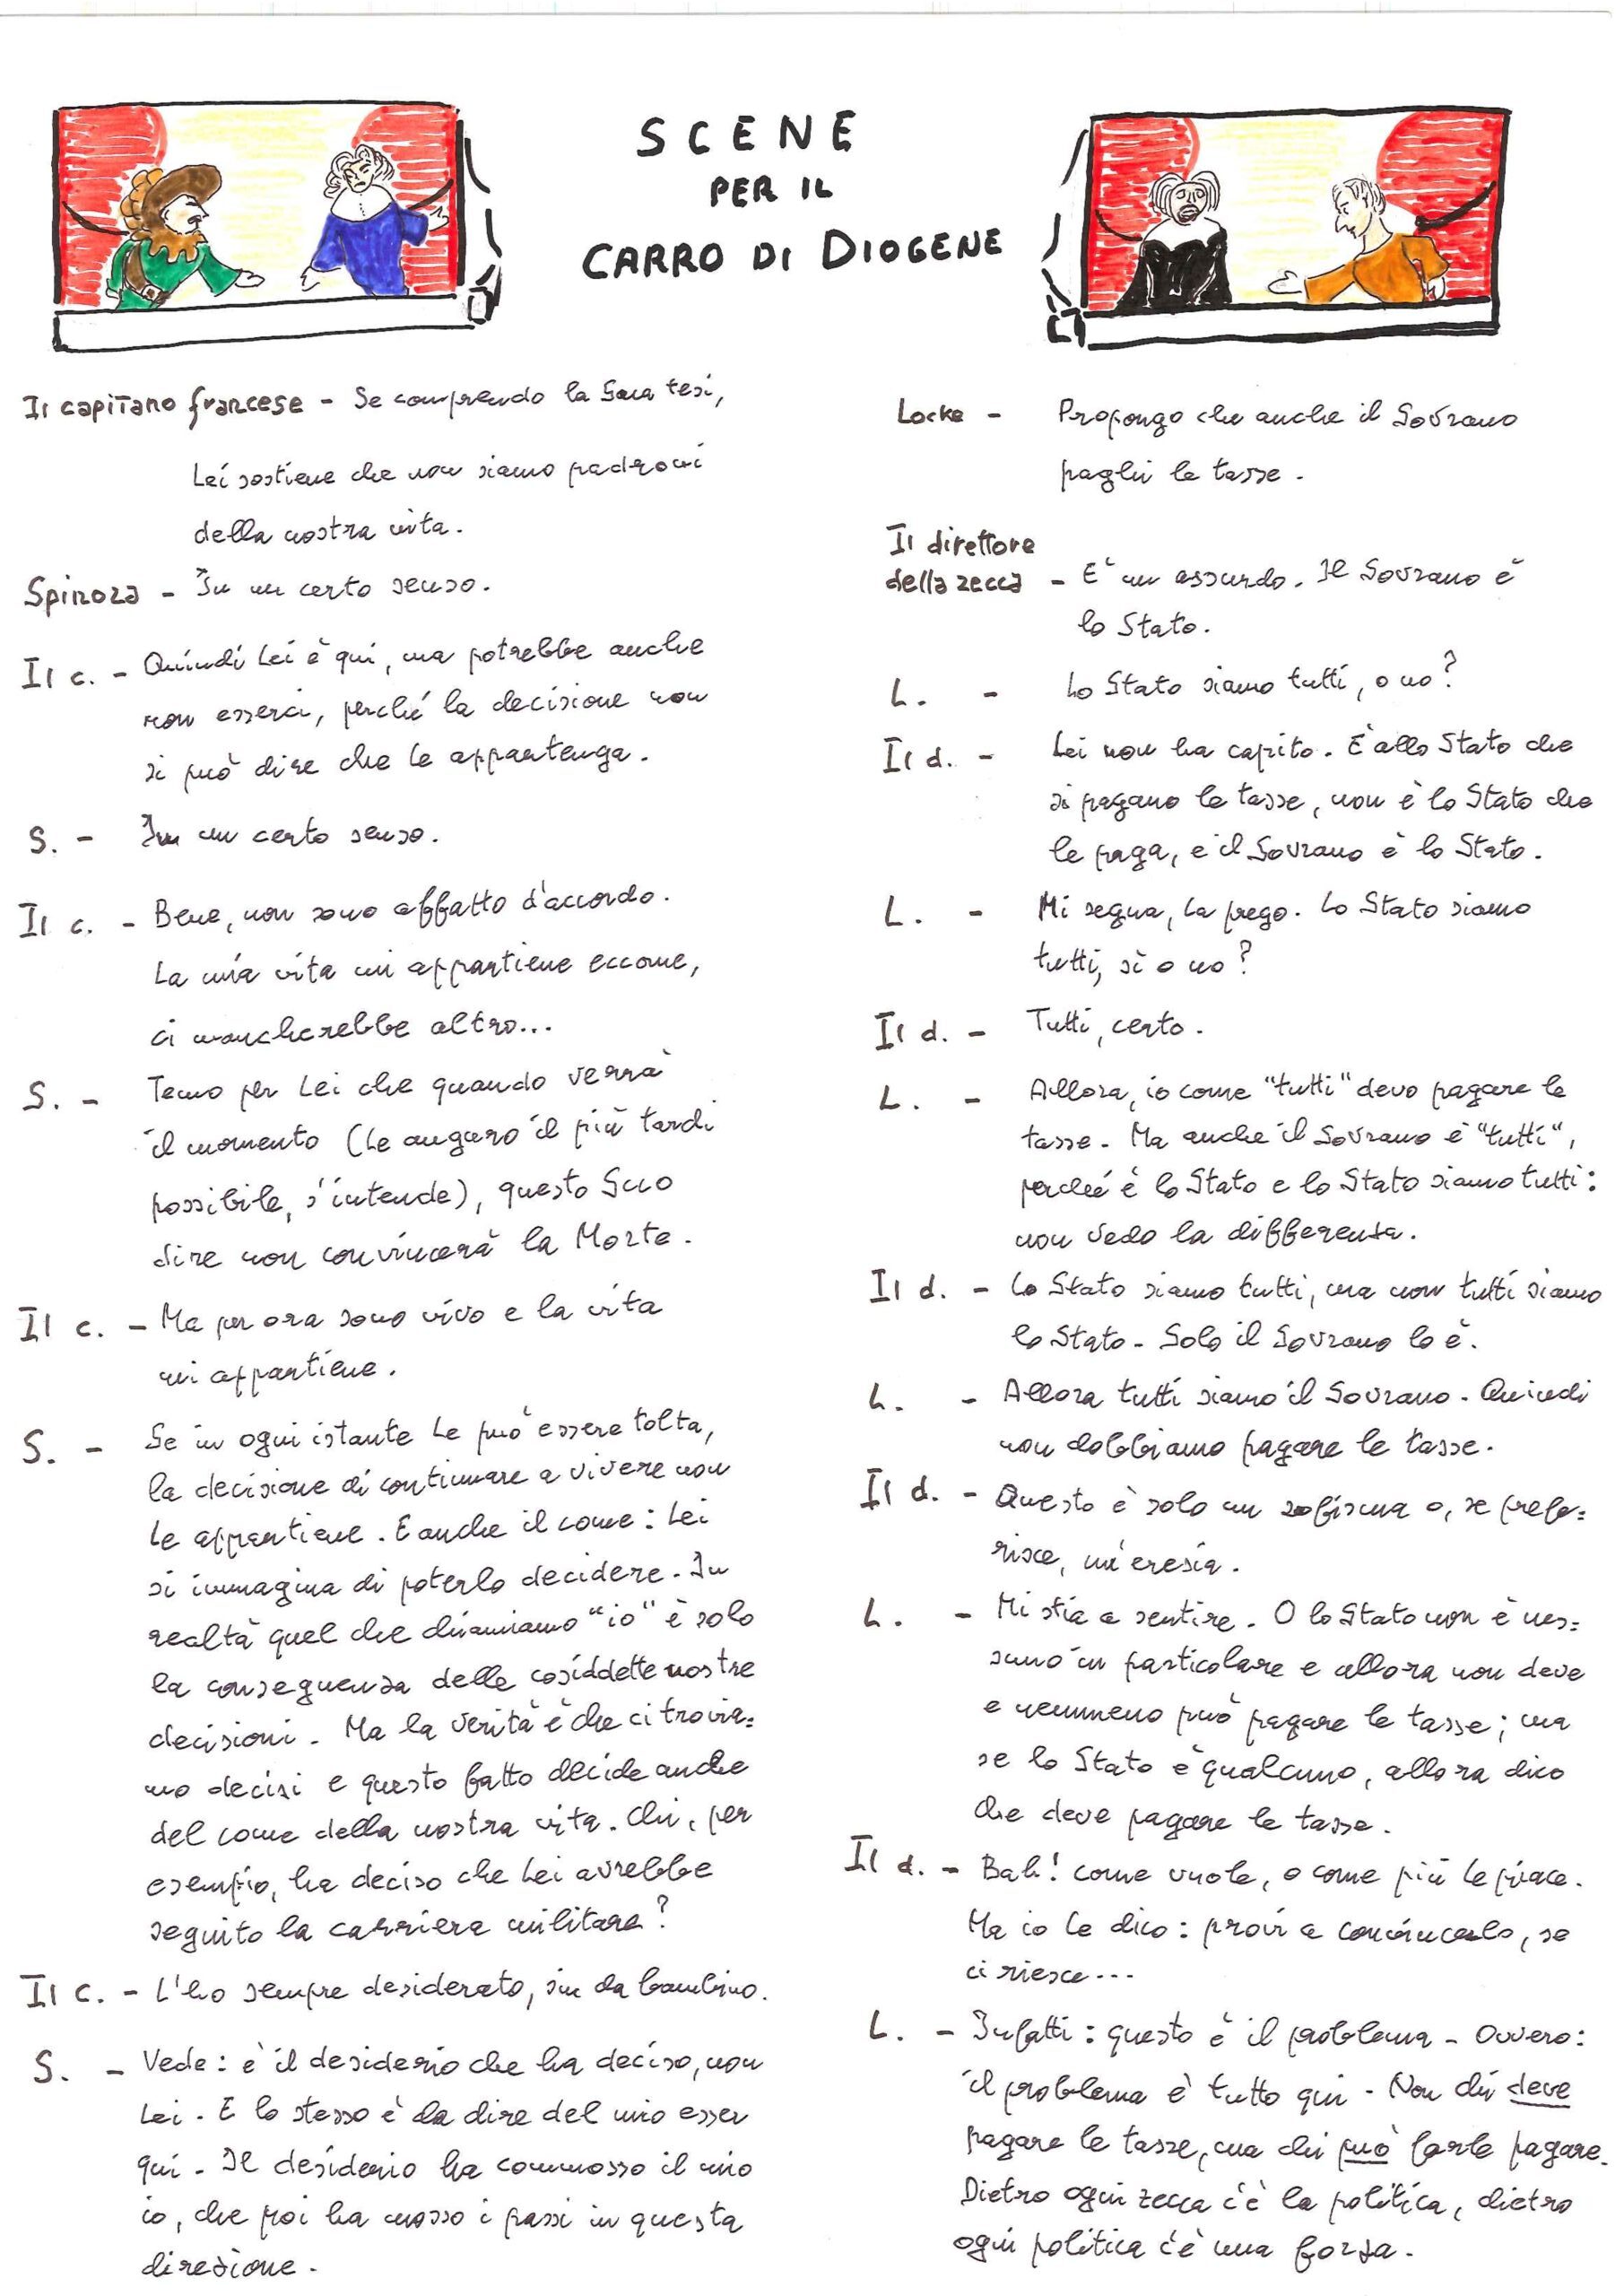 SCENE
PER IL
CARRO DI DIOGENE
Il capitano francese - Se comprendo la Sua tesi,
Lei sostiene che non siamo padroni
della nostra vita.
Spinoza - In un certo senso.
Il c. - Quindi Lei è qui, ma potrebbe anche
non esserci, perché la decisione non
si può dire che Le appartenga.
S. - In un certo senso.
Il c. - Bene, non sono affatto d'accordo.
La mia vita mi appartiene eccome,
ci mancherebbe altro...
S. - Temo per Lei che quando verrà
il momento (Le auguro il più tardi
possibile, s'intende), questo Suo
dire non convincerà la Morte.
Il c. - Ma per ora sono vivo e la vita
mi appartiene.
S. - Se in ogni istante Le può essere tolta,
la decisione di continuare a vivere non
Le appartiene. E anche il come: Lei
si immagina di poterlo decidere. In
realtà quel che chiamiamo "io" è solo
la conseguenza delle cosiddette nostre
decisioni. Ma la verità è che ci trovia=
mo decisi e questo fatto decide anche
del come della nostra vita. Chi, per
esempio, ha deciso che Lei avrebbe
seguito la carriera militare?
Il c. - L'ho sempre desiderato, sin da bambino.
S. - Vede: è il desiderio che ha deciso, non
Lei. E lo stesso è da dire del mio esser
qui. Il desiderio ha commosso il mio
io, che poi ha mosso i passi in questa
direzione.
Locke - Propongo che anche il Sovrano
paghi le tasse.
Il direttore
della zecca - E' un assurdo. Il Sovrano è
lo Stato.
L. - Lo Stato siamo tutti, o no?
Il d. - Lei non ha capito. È allo Stato che
si pagano le tasse, non è lo Stato che
le paga, e il Sovrano è lo Stato.
L. - Mi segua, La prego. Lo Stato siamo
tutti, sì o no?
Il d. - Tutti, certo.
L. - Allora, io come "tutti" devo pagare le
tasse. Ma anche il Sovrano è "tutti",
perché è lo Stato e lo Stato siamo tutti:
non vedo la differenza.
Il d. - Lo Stato siamo tutti, ma non tutti siamo
lo Stato. Solo il Sovrano lo è.
L. - Allora tutti siamo il Sovrano. Quindi
non dobbiamo pagare le tasse.
Il d. - Questo è solo un sofisma o, se prefe=
risce, un'eresia.
L. - Mi stia a sentire. O lo Stato non è nes=
suno in particolare e allora non deve
e nemmeno può pagare le tasse; ma
se lo Stato è qualcuno, allora dico
che deve pagare le tasse.
Il d. - Bah! Come vuole, o come più Le piace.
Ma io Le dico: provi a convincerlo, se
ci riesce...
L. - Infatti: questo è il problema. Ovvero:
il problema è tutto qui. Non chi deve
pagare le tasse, ma chi può farle pagare.
Dietro ogni zecca c'è la politica, dietro
ogni politica c'è una forza.